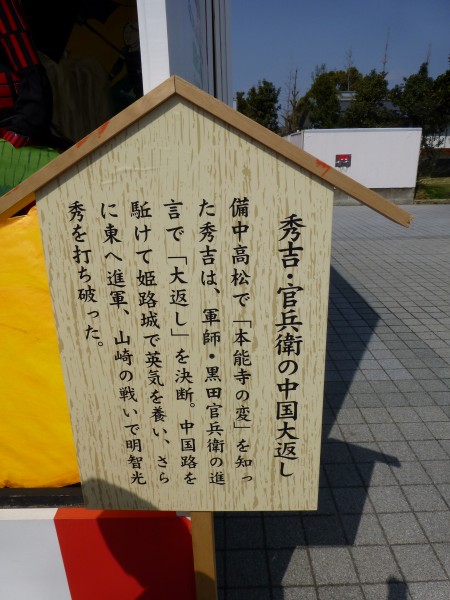 秀吉・官兵衛の中国大返し
備中高松で「本能寺の変」を知っ
た秀吉は、軍師・黒田官兵衛の進
言で「大返し」を決断。中国路を
駈けて姫路城で英気を養い、さら
に東へ進軍、山崎の戦いで明智光
秀を打ち破った。